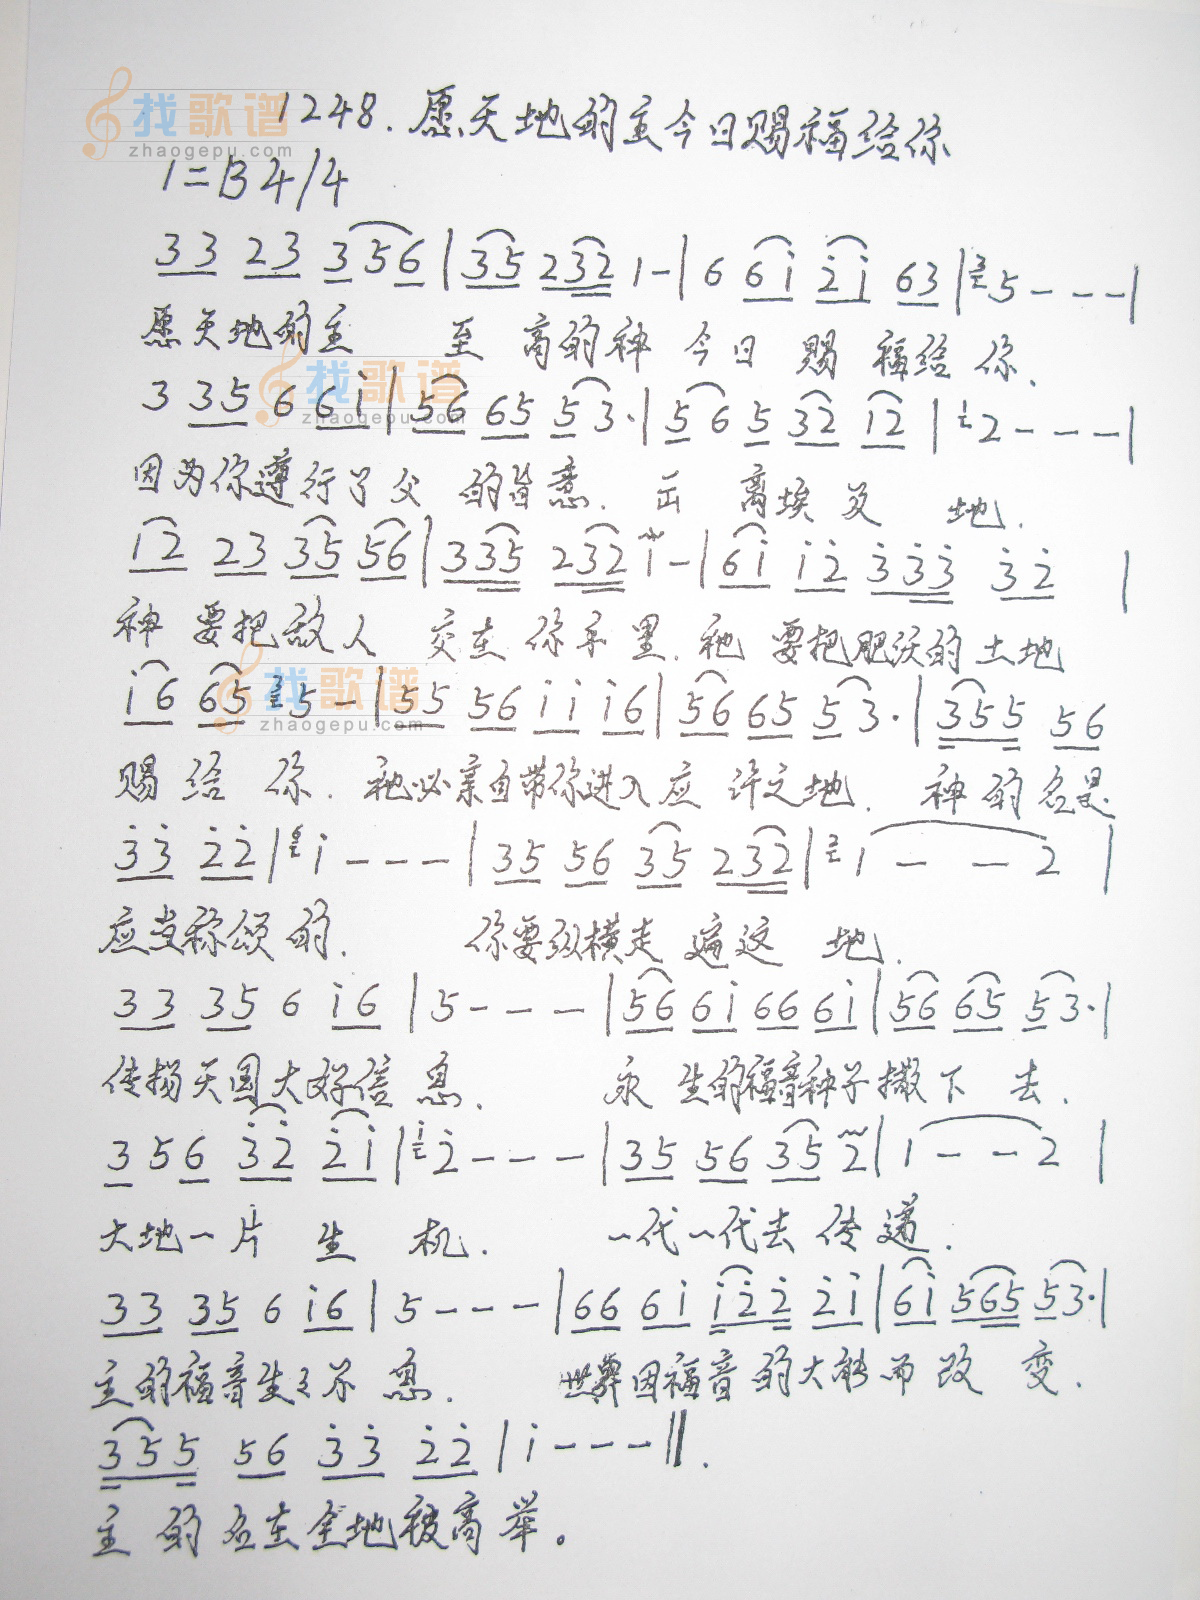 找歌谱
zhaogepu.com
1248.愿天地的主今日赐福给你
1=B 4/4
33 23 356|35 232 1-|6 6i 2i 63|5---|
愿天地的主 至高的神 今日赐福给你.
找歌谱
zhaogepu.com
3 35 6 6i|56 65 5 3·|5 6 5 32 12|2---|
因为你遵行了父的旨意. 出离埃及地.
12 23 35 56|335 232 i-|6i i2 333 32|
神要把敌人交在你手里.祂要把肥沃的土地
找歌谱
zhaogepu.com
i6 65 5-|55 56 ii i6|56 65 5 3·|355 56
赐给你.祂必亲自带你进入应许之地.神的名是
33 22|i---|35 56 35 232|1--2|
应当称颂的. 你要纵横走遍这地.
33 35 6 i6|5---|56 6i 66 6i|56 65 53·|
传扬天国大好信息. 永生的福音种子撒下去.
3 5 6 32 2i|2---|35 56 35 2|1--2|
大地一片生机. 一代一代去传递.
33 35 6 i6|5---|66 6i i22 2i|6i 565 53·|
主的福音生生不息. 世界因福音的大能而改变.
355 56 33 22|i---‖.
主的名在全地被高举。